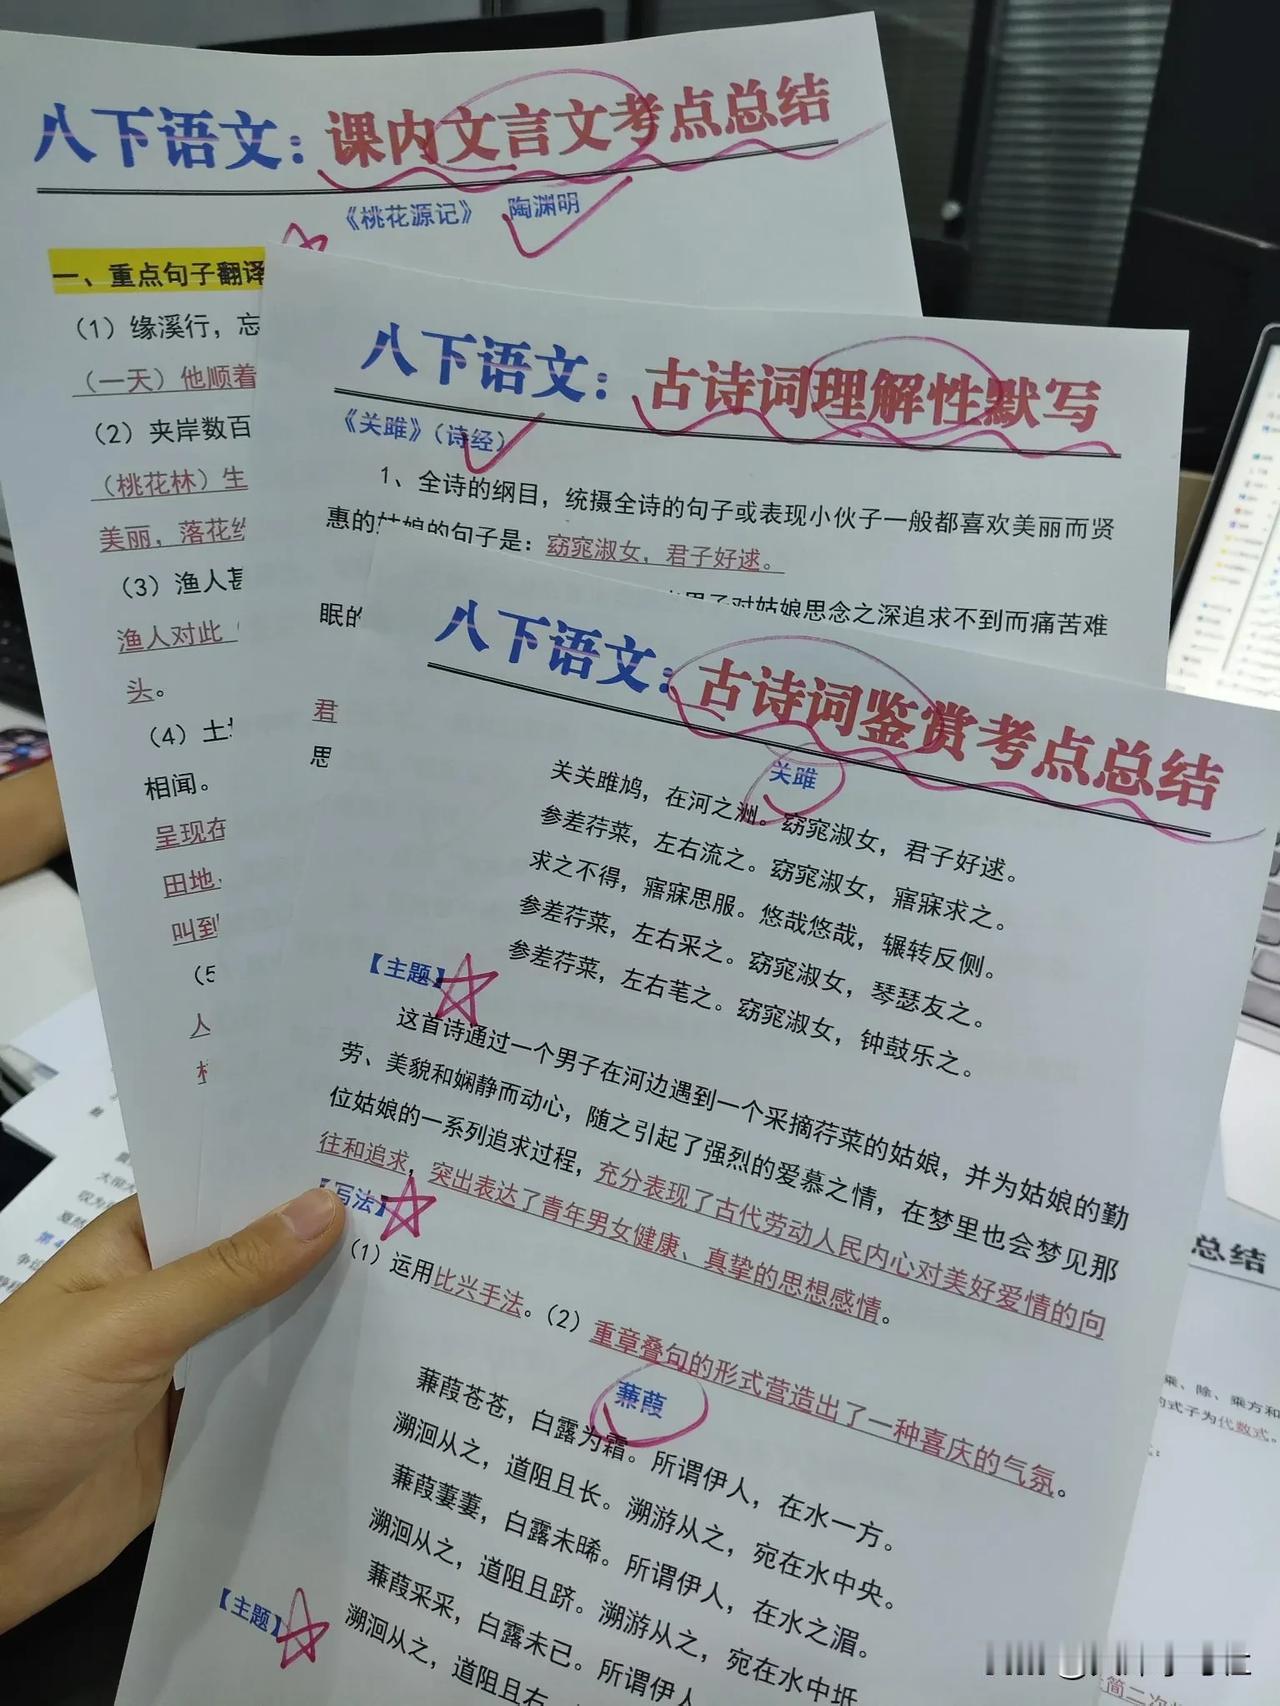 八下语文：课内文言文考点总结
《桃花源记》 陶渊明
一、重点句子翻译
（1）缘溪行，忘
（一天）他顺着
（2）夹岸数百
（桃花林）生
美丽，落花纷
（3）渔人甚
渔人对此
头。
（4）土
相闻。
呈现在
田地、
叫到
（5
人
八下语文：古诗词理解性默写
《关雎》（诗经）
1、全诗的纲目，统摄全诗的句子或表现小伙子一般都喜欢美丽而贤
惠的姑娘的句子是：窈窕淑女，君子好逑。
男子对姑娘思念之深追求不到而痛苦难
眠的
君
思
八下语文：古诗词鉴赏考点总结
关雎
关关雎鸠，在河之洲。窈窕淑女，君子好逑。
参差荇菜，左右流之。窈窕淑女，寤寐求之。
求之不得，寤寐思服。悠哉悠哉，辗转反侧。
参差荇菜，左右采之。窈窕淑女，琴瑟友之。
参差荇菜，左右芼之。窈窕淑女，钟鼓乐之。
【主题】
这首诗通过一个男子在河边遇到一个采摘荇菜的姑娘，并为姑娘的勤
劳、美貌和娴静而动心，随之引起了强烈的爱慕之情，在梦里也会梦见那
位姑娘的一系列追求过程，充分表现了古代劳动人民内心对美好爱情的向
往和追求，突出表达了青年男女健康、真挚的思想感情。
【写法】
（1）运用比兴手法。（2）重章叠句的形式营造出了一种喜庆的气氛。
蒹葭
蒹葭苍苍，白露为霜。所谓伊人，在水一方。
溯洄从之，道阻且长。溯游从之，宛在水中央。
蒹葭萋萋，白露未晞。所谓伊人，在水之湄。
溯洄从之，道阻且跻。溯游从之，宛在水中坻
蒹葭采采，白露未已。所谓伊人
溯洄从之，道阻且右
【主题】
总结
乘、除、乘方和
的式子为代数式。
简二次根